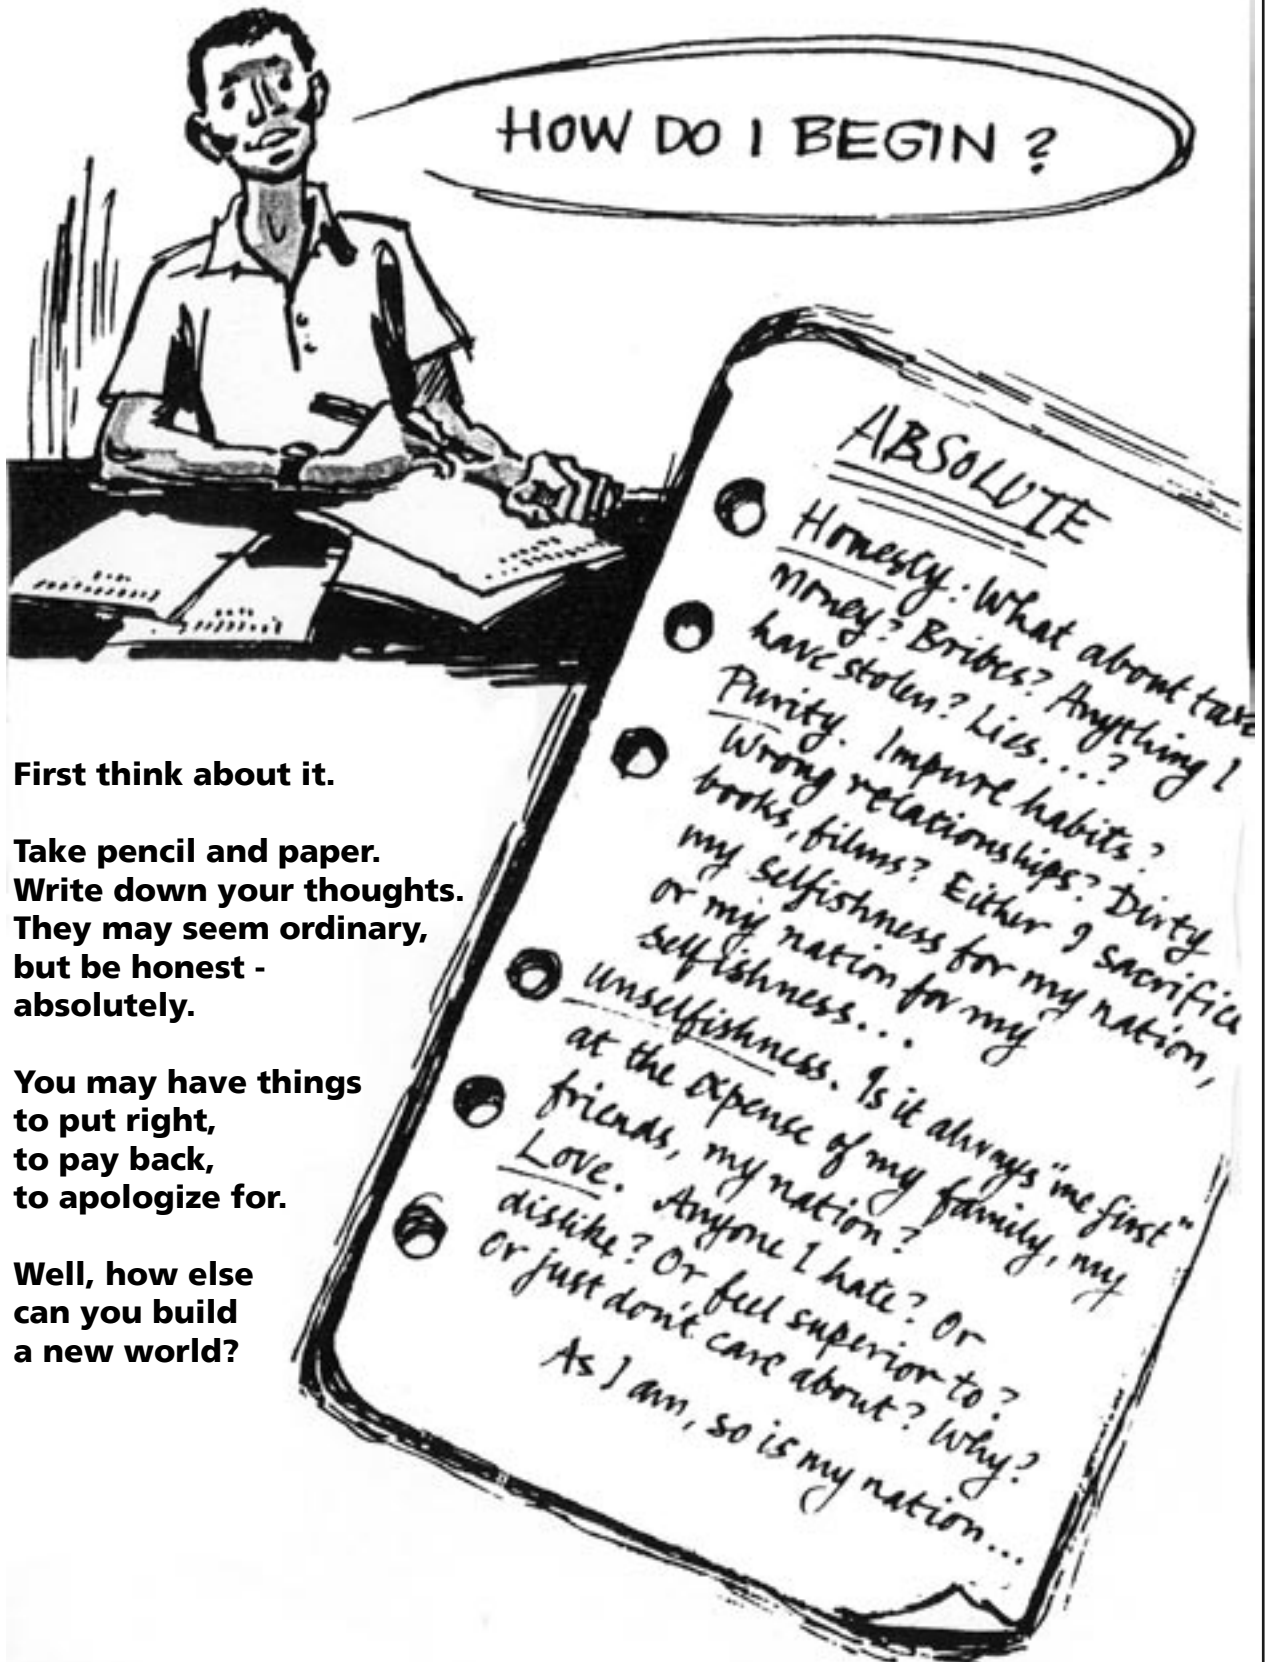 HOW DO I BEGIN ?
First think about it.
Take pencil and paper.
Write down your thoughts.
They may seem ordinary,
but be honest -
absolutely.
You may have things
to put right,
to pay back,
to apologize for.
Well, how else
can you build
a new world?
ABSOLUTE
Honesty: What about
money? Bribes? Anything I
have stolen? Lies....?
Purity. Impure habits?
Wrong relationships? Dirty
books, films? Either I sacrifice
my selfishness for my nation,
or my nation for my
selfishness...
Unselfishness. Is it always "me first"
at the expense of my family, my
friends, my nation?
Love. Anyone I hate? Or
dislike? Or feel superior to?
Or just don't care about? Why?
As I am, so is my nation...